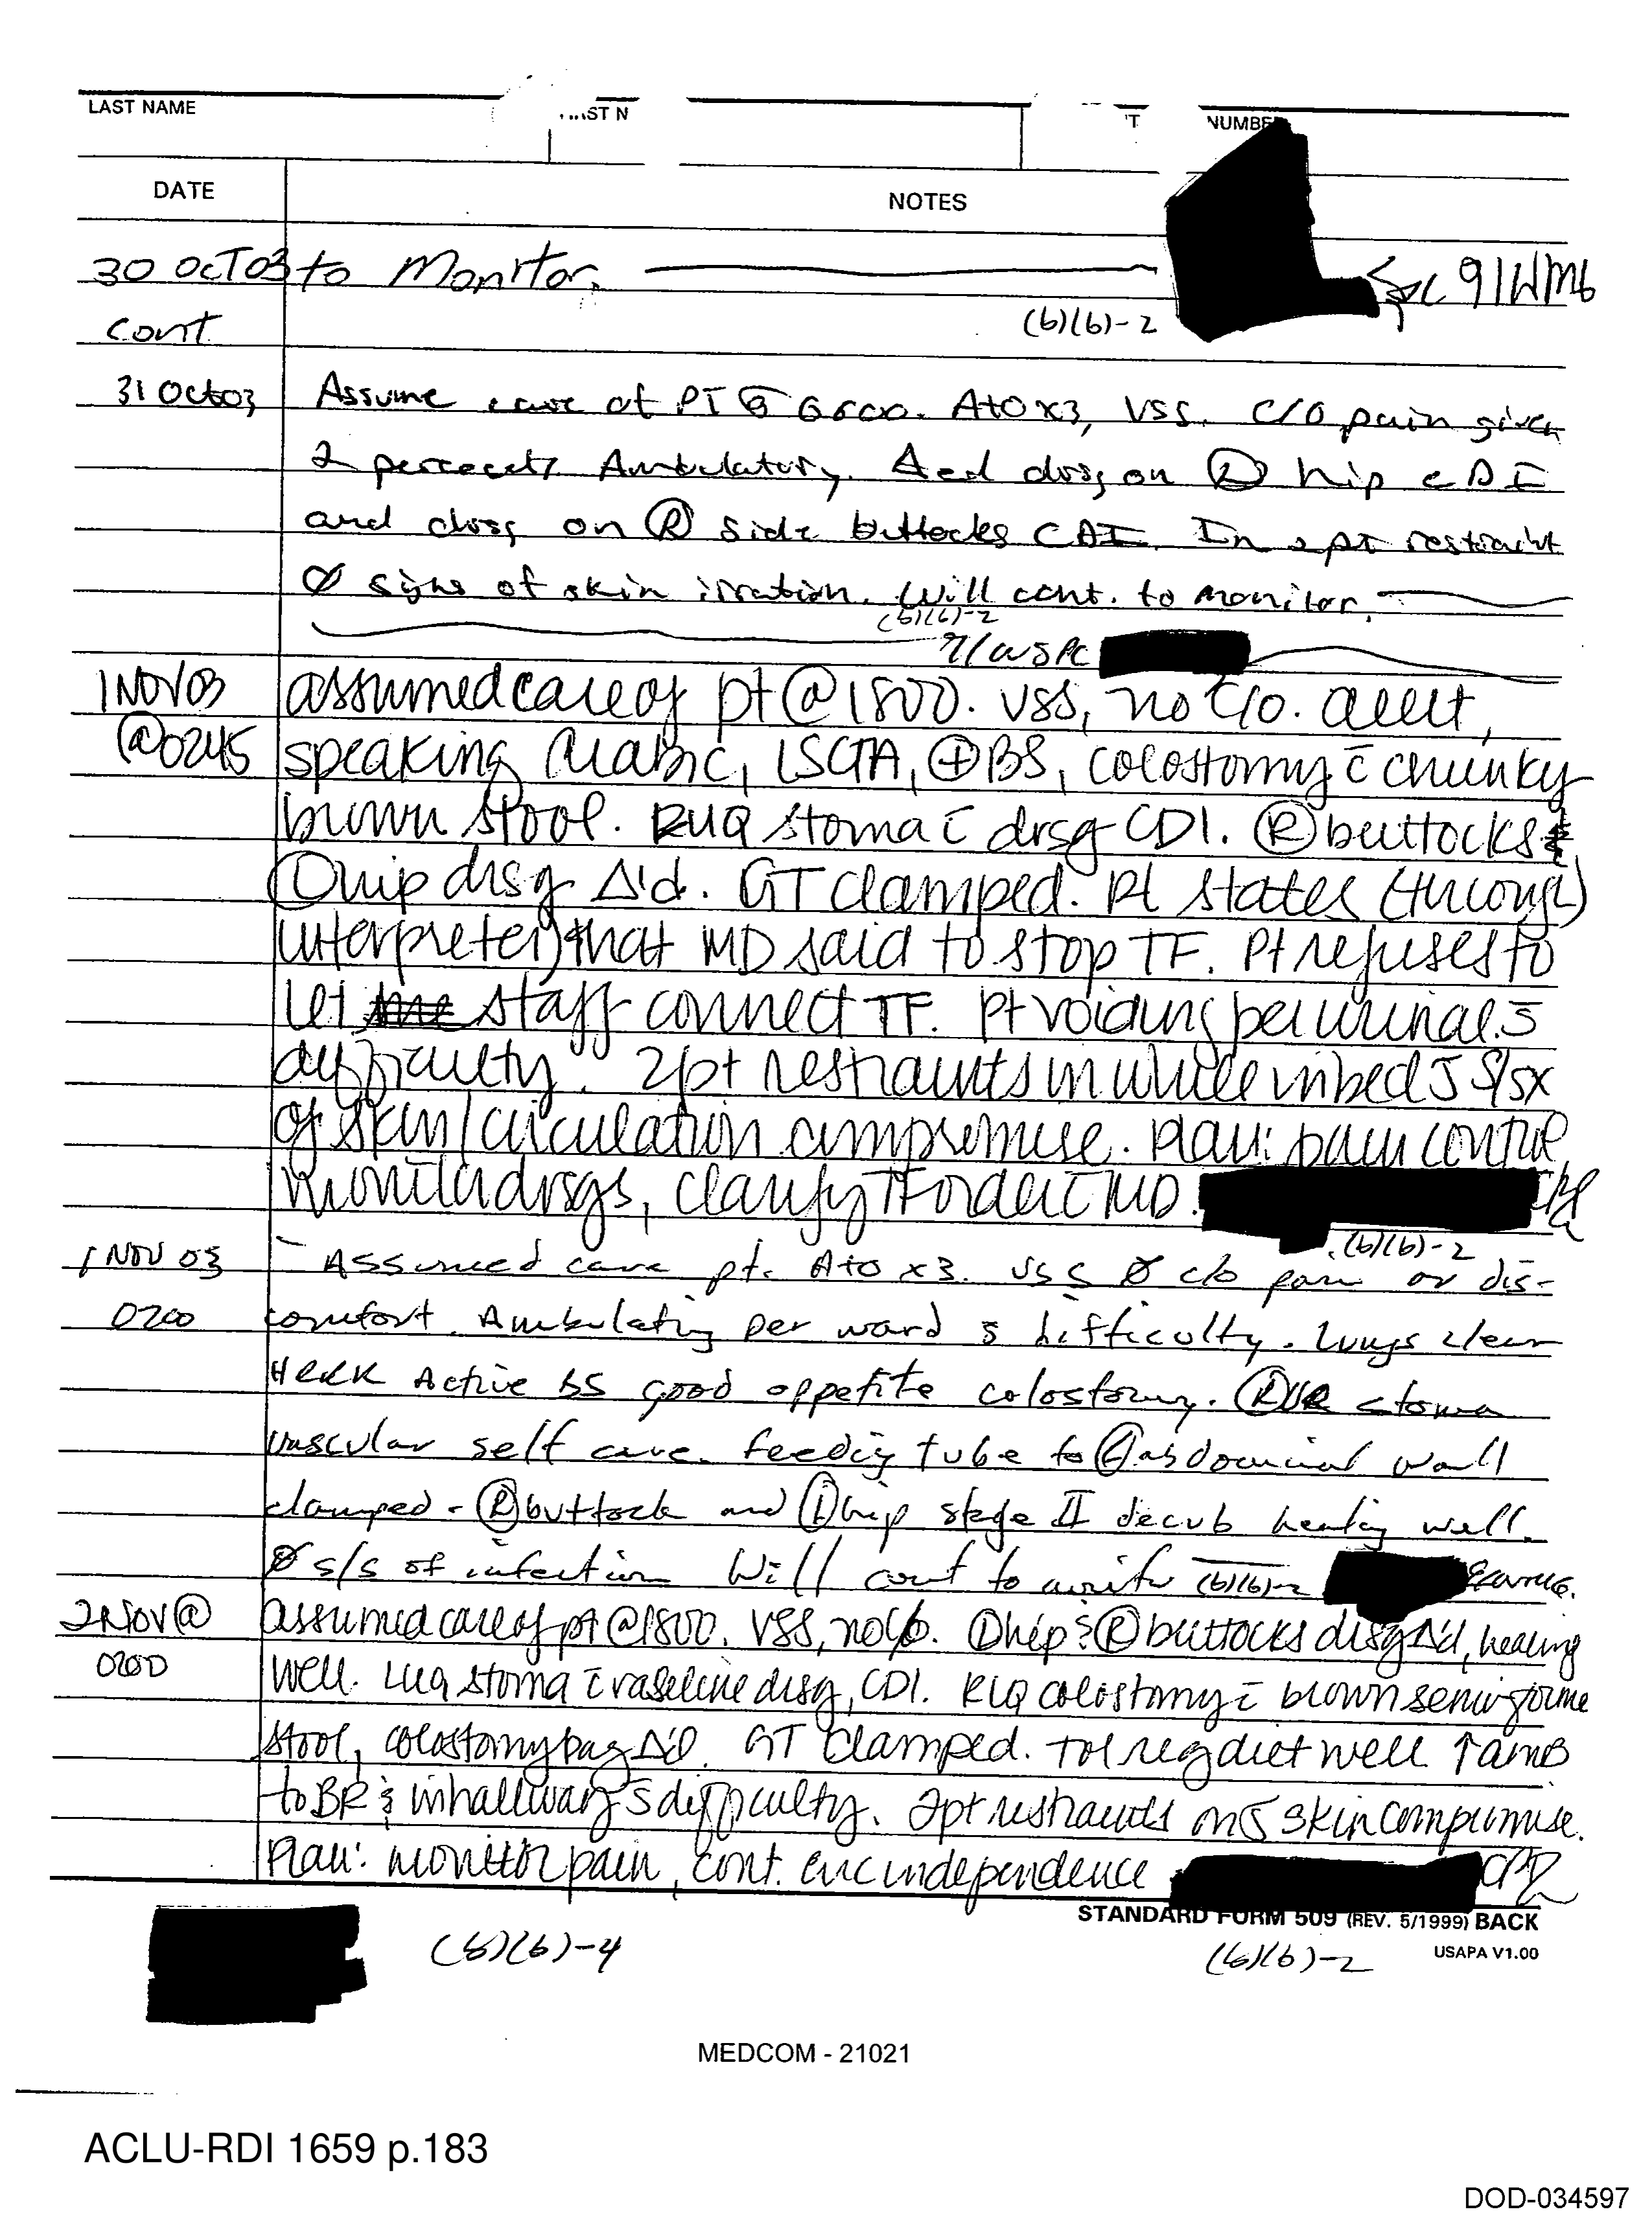 LAST NAME
NUMBE
DATE
NOTES
30 OCT03 to Monitor. Spc 91WM6
cont (b)(6)-2
31 Oct 03 Assume care of PT @ 0600. A+O x3, VSS. C/O pain given
2 percocets Ambulatory. drsg on hip CDI
and drsg on Ⓡ side buttocks CDI. In 2pt restraint
Ø signs of skin irration. Will cont. to monitor.
(b)(6)-2
91W SPC
1 NOV 03 assumed care of pt @ 1800. VSS, no c/o. alert,
@ 0245 speaking Arabic, LSCTA, ⊕BS, colostomy c̄ chunky
brown stool. RUQ stoma c̄ drsg CDI. Ⓡ buttocks &
Ⓛ hip drsg Δ'd. GT clamped. Pt states (through
interpreter) that MD said to stop TF. Pt refuses to
let ~~me~~ staff connect TF. Pt voiding per urinal s̄
difficulty. 2pt restraints in while in bed s̄ S/Sx
of skin/circulation compromise. Plan: pain control,
monitor drsgs, clarify TF order c̄ MD.
(b)(6)-2
1 NOV 03 - Assumed care pt. A+O x3. VSS Ø c/o pain or dis-
0200 comfort. Ambulating per ward s̄ difficulty. Lungs clear
Active BS good appetite colostomy. stoma
self care. feeding tube to Ⓛ abdominal wall
clamped - Ⓡ buttock and Ⓛ hip stage II decub healing well.
Ø s/s of infection Will cont to (b)(6)-2
2 NOV @ assumed care of pt @ 1800. VSS, no c/o. Ⓛ hip & Ⓡ buttocks drsg Δ'd, healing
0200 well. LUQ stoma c̄ vaseline drsg, CDI. RLQ colostomy c̄ brown semi-forme
stool, colostomy bag Δ'd. GT clamped. Tol reg diet well ↑ amb
to BR & in hallway s̄ difficulty. 2pt restraints on s̄ skin compromise.
Plan: monitor pain, cont. enc independence
STANDARD FORM 509 (REV. 5/1999) BACK
(b)(6)-4
(b)(6)-2
USAPA V1.00
MEDCOM - 21021
ACLU-RDI 1659 p.183
DOD-034597